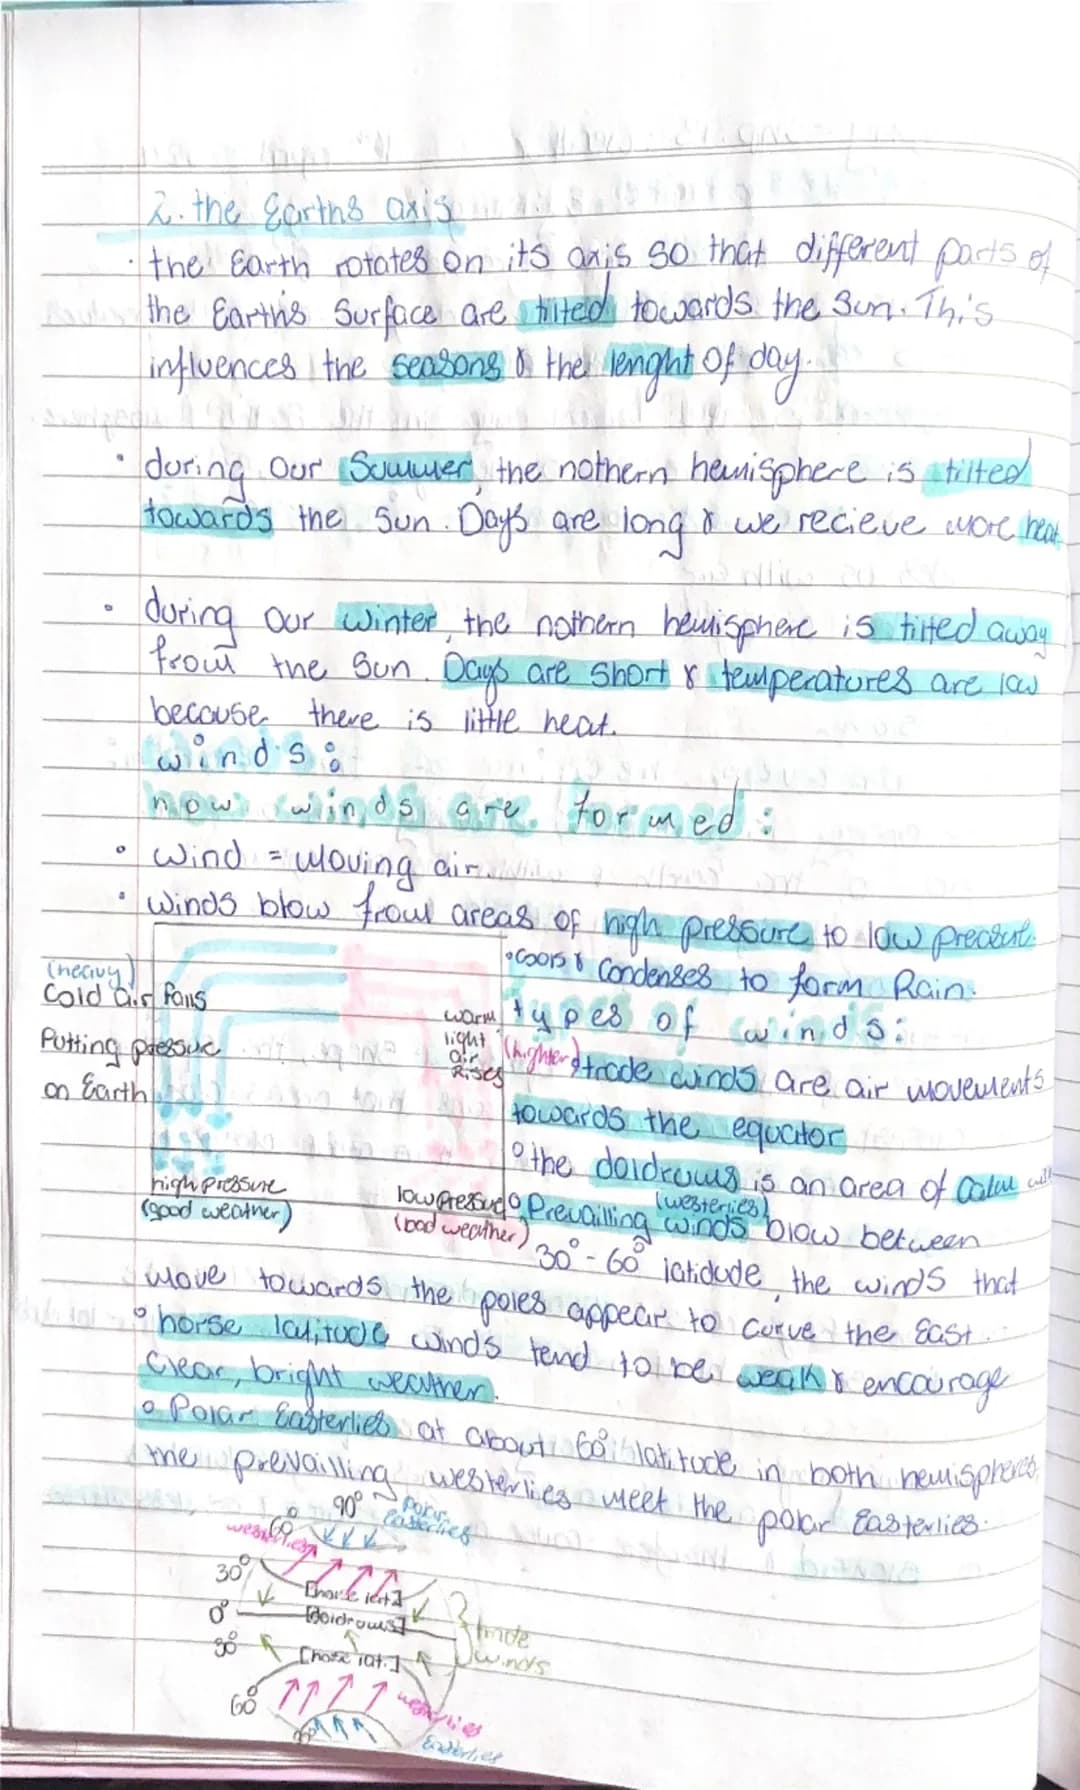 2. the Earths axis
· the Earth rotates on its axis so that different parts of
the Earth's Surface are tilted towards the Sun. This
influences the seasons & the lenght of day.
· during our Summer, the nothern hemisphere is tilted
towards the Sun. Days are long & we recieve more heat
· during our winter, the nothern hemisphere is tilted away
from the Sun. Days are short & temperatures are low
because there is little heat.
winds:
how winds are formed:
· wind = moving air.
· winds blow from areas of high pressure to low presure.
· cools & Condenses to form Rain.
(heavy)
Cold air falls
Putting pressure
on Earth
warm
light
air
Rises
(lighter)
high pressure
(good weather)
low pressure
(bad weather)
types of winds:
° trade winds are air movements
towards the equator
° the doldrums is an area of Calm
(westerlies)
° Prevailling winds blow between
30° - 60° latidude, the winds that
move towards the poles appear to curve the East.
° horse latitude winds tend to be weak & encourage
Clear, bright weather.
° Polar Easterlies at about 60° latitude in both hemispheres,
the prevailling westerlies meet the polar Easterlies.
90° Polar
easterlies
westerlies 60°
30°
[horse lat.]
0° [doldrums]
trade
winds
30° [horse lat.]
60° westerlies
90°
Easterlies